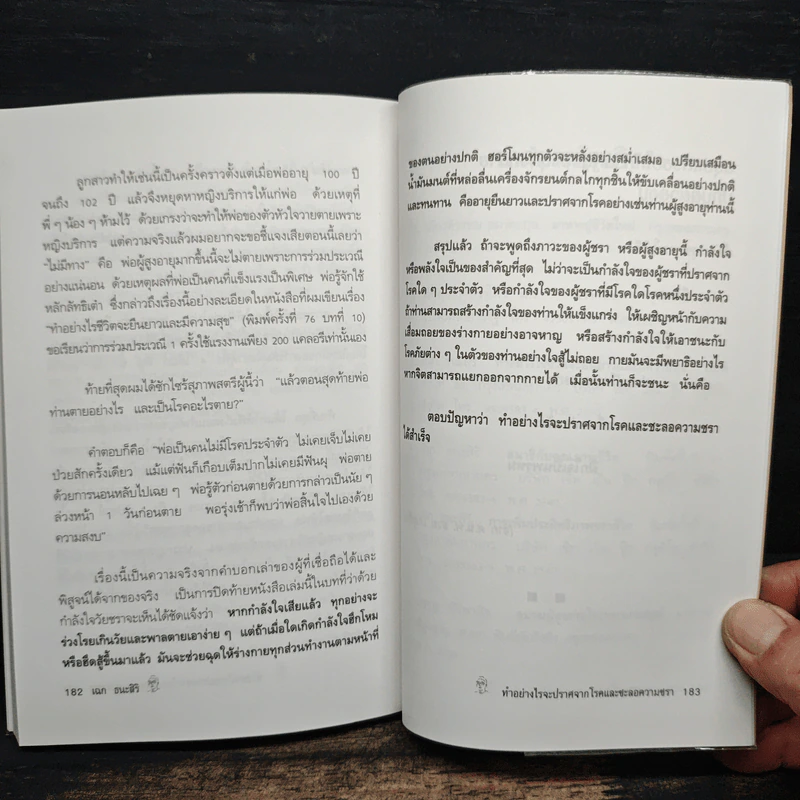 ลูกสาวทำให้เช่นนี้เป็นครั้งคราวตั้งแต่เมื่อพ่ออายุ 100 ปี
จนถึง 102 ปี แล้วจึงหยุดหาหญิงบริการให้แก่พ่อ ด้วยเหตุที่
พี่ ๆ น้อง ๆ ห้ามไว้ ด้วยเกรงว่าจะทำให้พ่อของตัวหัวใจวายตายเพราะ
หญิงบริการ แต่ความจริงแล้วผมอยากจะขอชี้แจงเสียตอนนี้เลยว่า
"ไม่มีทาง" คือ พ่อผู้สูงอายุมากขึ้นนี้จะไม่ตายเพราะการร่วมประเวณี
อย่างแน่นอน ด้วยเหตุผลที่พ่อเป็นคนที่แข็งแรงเป็นพิเศษ พ่อรู้จักใช้
หลักลัทธิเต๋า ซึ่งกล่าวถึงเรื่องนี้อย่างละเอียดในหนังสือที่ผมเขียนเรื่อง
"ทำอย่างไรชีวิตจะยืนยาวและมีความสุข" (พิมพ์ครั้งที่ 76 บทที่ 10)
ขอเรียนว่าการร่วมประเวณี 1 ครั้งใช้แรงงานเพียง 200 แคลอรีเท่านั้นเอง
ท้ายที่สุดผมได้ซักไซร้สุภาพสตรีผู้นี้ว่า "แล้วตอนสุดท้ายพ่อ
ท่านตายอย่างไร และเป็นโรคอะไรตาย?"
คำตอบก็คือ "พ่อเป็นคนไม่มีโรคประจำตัว ไม่เคยเจ็บไม่เคย
ป่วยสักครั้งเดียว แม้แต่ฟันก็เกือบเต็มปากไม่เคยมีฟันผุ พ่อตาย
ด้วยการนอนหลับไปเฉย ๆ พ่อรู้ตัวก่อนตายด้วยการกล่าวเป็นนัย ๆ
ล่วงหน้า 1 วันก่อนตาย พอรุ่งเช้าก็พบว่าพ่อสิ้นใจไปเองด้วย
ความสงบ"
เรื่องนี้เป็นความจริงจากคำบอกเล่าของผู้ที่เชื่อถือได้และ
พิสูจน์ได้จากของจริง เป็นการปิดท้ายหนังสือเล่มนี้ในบทที่ว่าด้วย
กำลังใจวัยชราจะเห็นได้ชัดแจ้งว่า หากกำลังใจเสียแล้ว ทุกอย่างจะ
ร่วงโรยเกินวัยและพาลตายเอาง่าย ๆ แต่ถ้าเมื่อใดเกิดกำลังใจฮึกโหม
หรือฮึดสู้ขึ้นมาแล้ว มันจะช่วยฉุดให้ร่างกายทุกส่วนทำงานตามหน้าที่
182 เฉก ธนะสิริ
ของตนอย่างปกติ ฮอร์โมนทุกตัวจะหลั่งอย่างสม่ำเสมอ เปรียบเสมือน
น้ำมันมนต์ที่หล่อลื่นเครื่องจักรยนต์กลไกทุกชิ้นให้ขับเคลื่อนอย่างปกติ
และทนทาน คืออายุยืนยาวและปราศจากโรคอย่างเช่นท่านผู้สูงอายุท่านนี้
สรุปแล้ว ถ้าจะพูดถึงภาวะของผู้ชรา หรือผู้สูงอายุนี้ กำลังใจ
หรือพลังใจเป็นของสำคัญที่สุด ไม่ว่าจะเป็นกำลังใจของผู้ชราที่ปราศจาก
โรคใด ๆ ประจำตัว หรือกำลังใจของผู้ชราที่มีโรคใดโรคหนึ่งประจำตัว
ถ้าท่านสามารถสร้างกำลังใจของท่านให้แข็งแกร่ง ให้เผชิญหน้ากับความ
เสื่อมถอยของร่างกายอย่างอาจหาญ หรือสร้างกำลังใจให้เอาชนะกับ
โรคภัยต่าง ๆ ในตัวของท่านอย่างใจสู้ไม่ถอย กายมันจะมีพยาธิอย่างไร
หากจิตสามารถแยกออกจากกายได้ เมื่อนั้นท่านก็จะชนะ นั่นคือ
ตอบปัญหาว่า ทำอย่างไรจะปราศจากโรคและชะลอความชรา
ได้สำเร็จ
ทำอย่างไรจะปราศจากโรคและชะลอความชรา 183